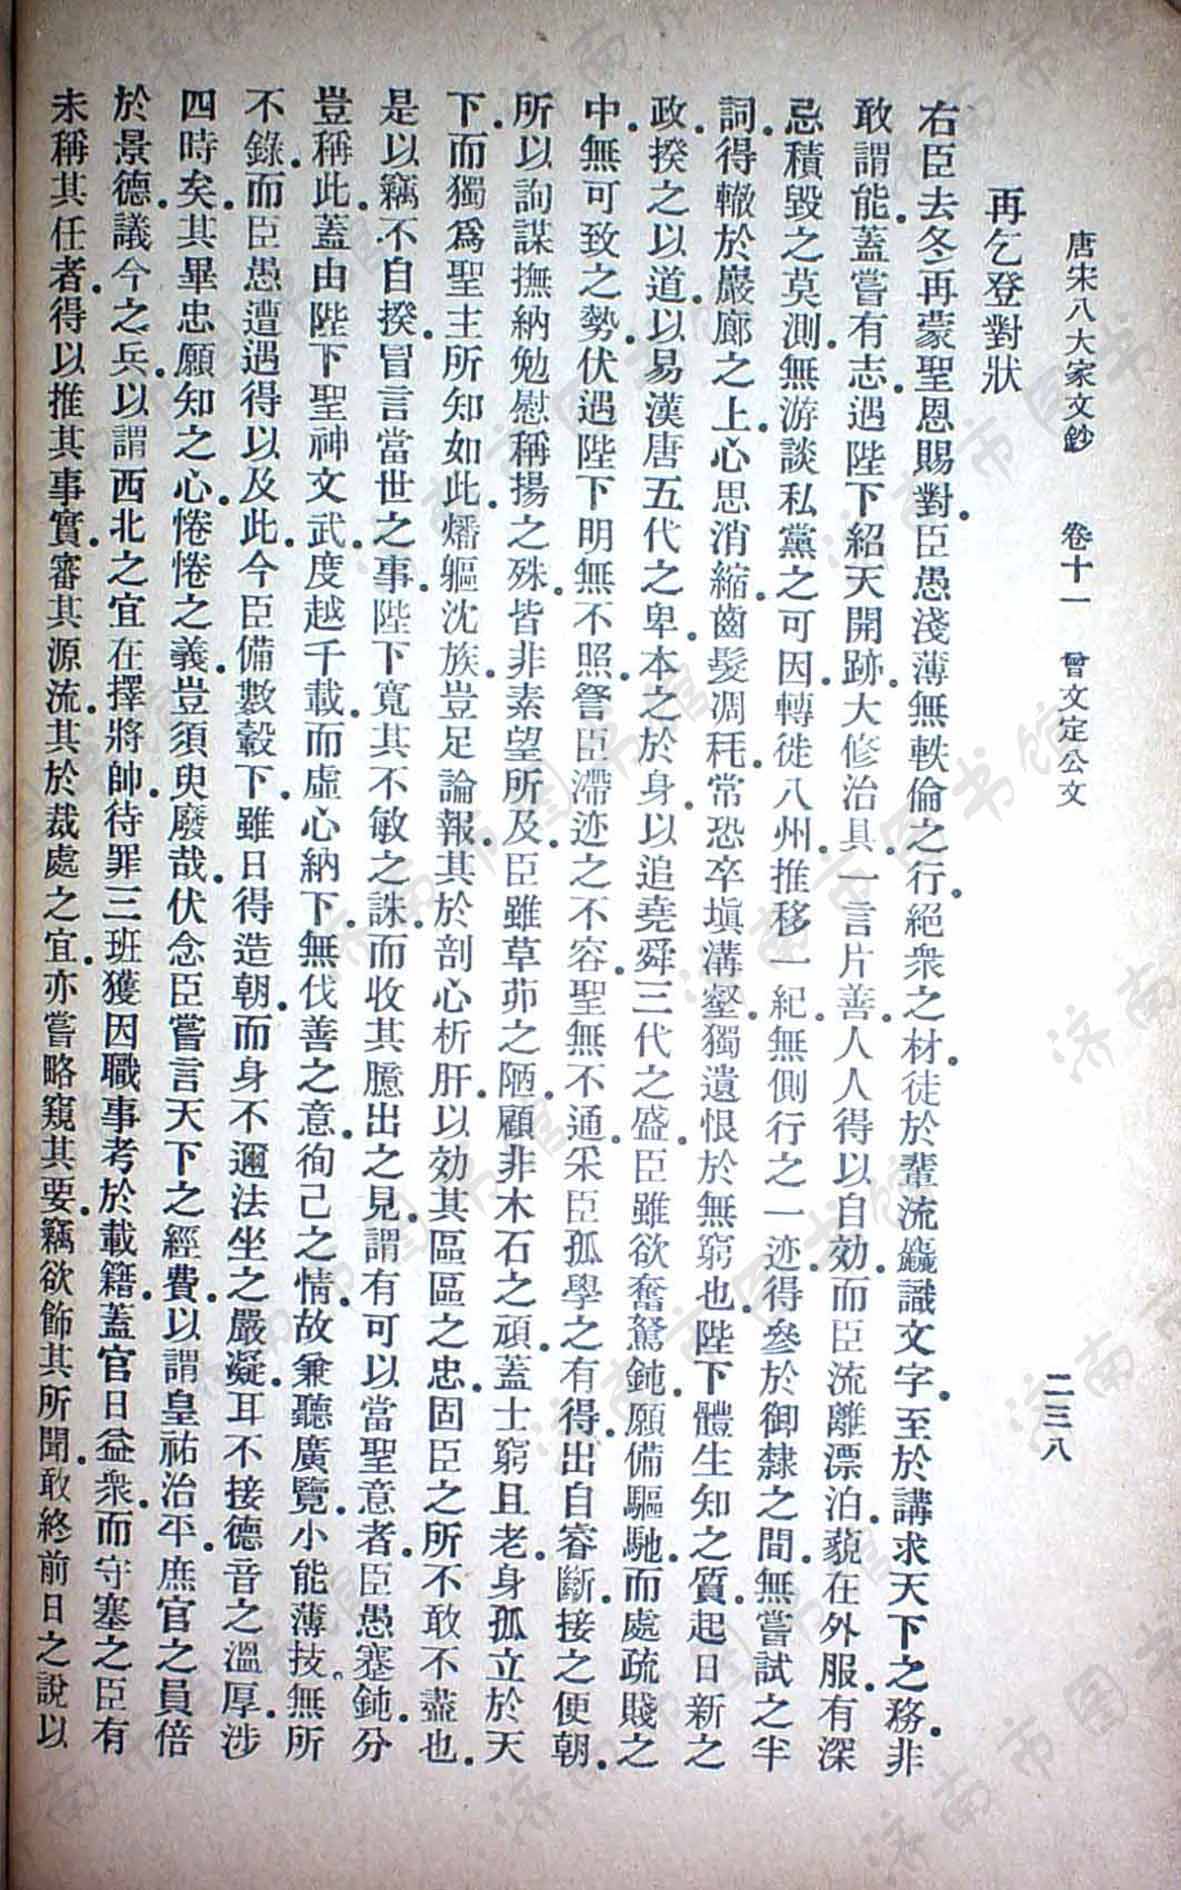 唐宋八大家文鈔　卷十一　曾文定公文　二三八
再乞登對狀
右臣去冬再蒙聖恩賜對。臣愚淺薄無軼倫之行。絕衆之材。徒於輩流麤識文字。至於講求天下之務。非
敢謂能。蓋嘗有志。遇陛下紹天開跡。大修治具。一言片善。人人得以自効。而臣流離漂泊。藐在外服。有深
忌積毀之莫測。無游談私黨之可因。轉徙八州。推移一紀。無側行之一迹。得參於御隸之間。無嘗試之半
詞。得轍於巖廊之上。心思消縮。齒髮凋秏。常恐卒塡溝壑。獨遺恨於無窮也。陛下體生知之質。起日新之
政。揆之以道。以易漢唐五代之卑。本之於身。以追堯舜三代之盛。臣雖欲奮駑鈍。願備驅馳。而處疏賤之
中。無可致之勢。伏遇陛下明無不照。詧臣滯迹之不容。聖無不通。采臣孤學之有得。出自睿斷。接之便朝。
所以詢謀撫納勉慰稱揚之殊。皆非素望所及。臣雖草茆之陋。顧非木石之頑。蓋士窮且老。身孤立於天
下。而獨爲聖主所知如此。燔軀沈族。豈足論報。其於剖心析肝。以効其區區之忠。固臣之所不敢不盡也。
是以竊不自揆。冒言當世之事。陛下寬其不敏之誅。而收其臆出之見。謂有可以當聖意者。臣愚蹇鈍。分
豈稱此。蓋由陛下聖神文武。度越千載。而虛心納下。無伐善之意。徇己之情。故兼聽廣覽。小能薄技。無所
不錄。而臣愚遭遇得以及此。今臣備數轂下。雖日得造朝。而身不邇法坐之嚴凝。耳不接德音之溫厚。涉
四時矣。其畢忠願知之心。惓惓之義。豈須臾廢哉。伏念臣嘗言天下之經費。以謂皇祐治平。庶官之員倍
於景德。議今之兵。以謂西北之宜在擇將帥。待罪三班。獲因職事考於載籍。蓋官日益衆。而守塞之臣有
未稱其任者。得以推其事實。審其源流。其於裁處之宜。亦嘗略窺其要。竊欲飾其所聞。敢終前日之說。以